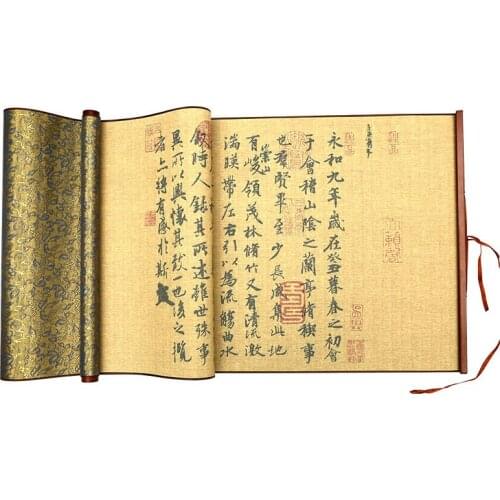 永和九年歲在癸丑暮春之初會
于會稽山陰之蘭亭脩稧事
也羣賢畢至少長咸集此地
崇山
有峻領茂林脩竹又有清流激
湍暎帶左右引以為流觴曲水
敘時人錄其所述雖世殊事
異所以興懷其致一也後之攬
者亦將有感於斯文